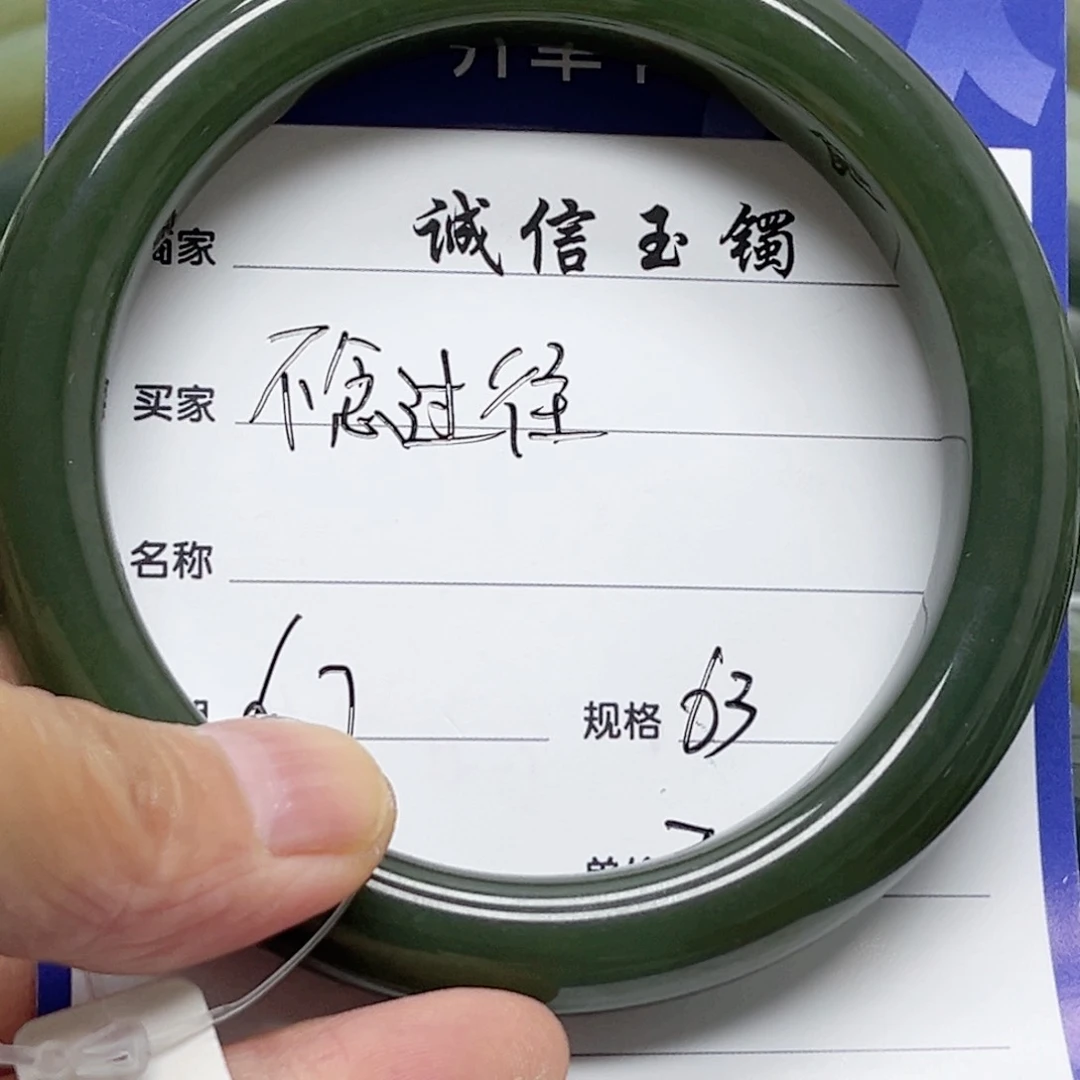 诚信玉镯
家
买家 不念过往
名称
67 规格 63